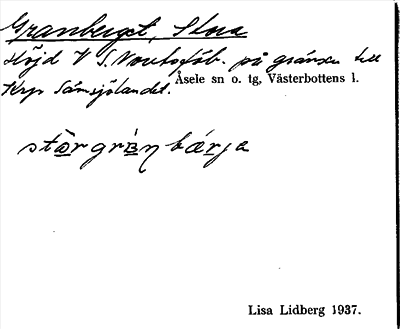 Granberget, Stora
Höjd V S. Nordsjöb. på gränsen till
Krp Sämsjölandet.
Åsele sn o. tg, Västerbottens l.
stòrgránbǽrja
Lisa Lidberg 1937.